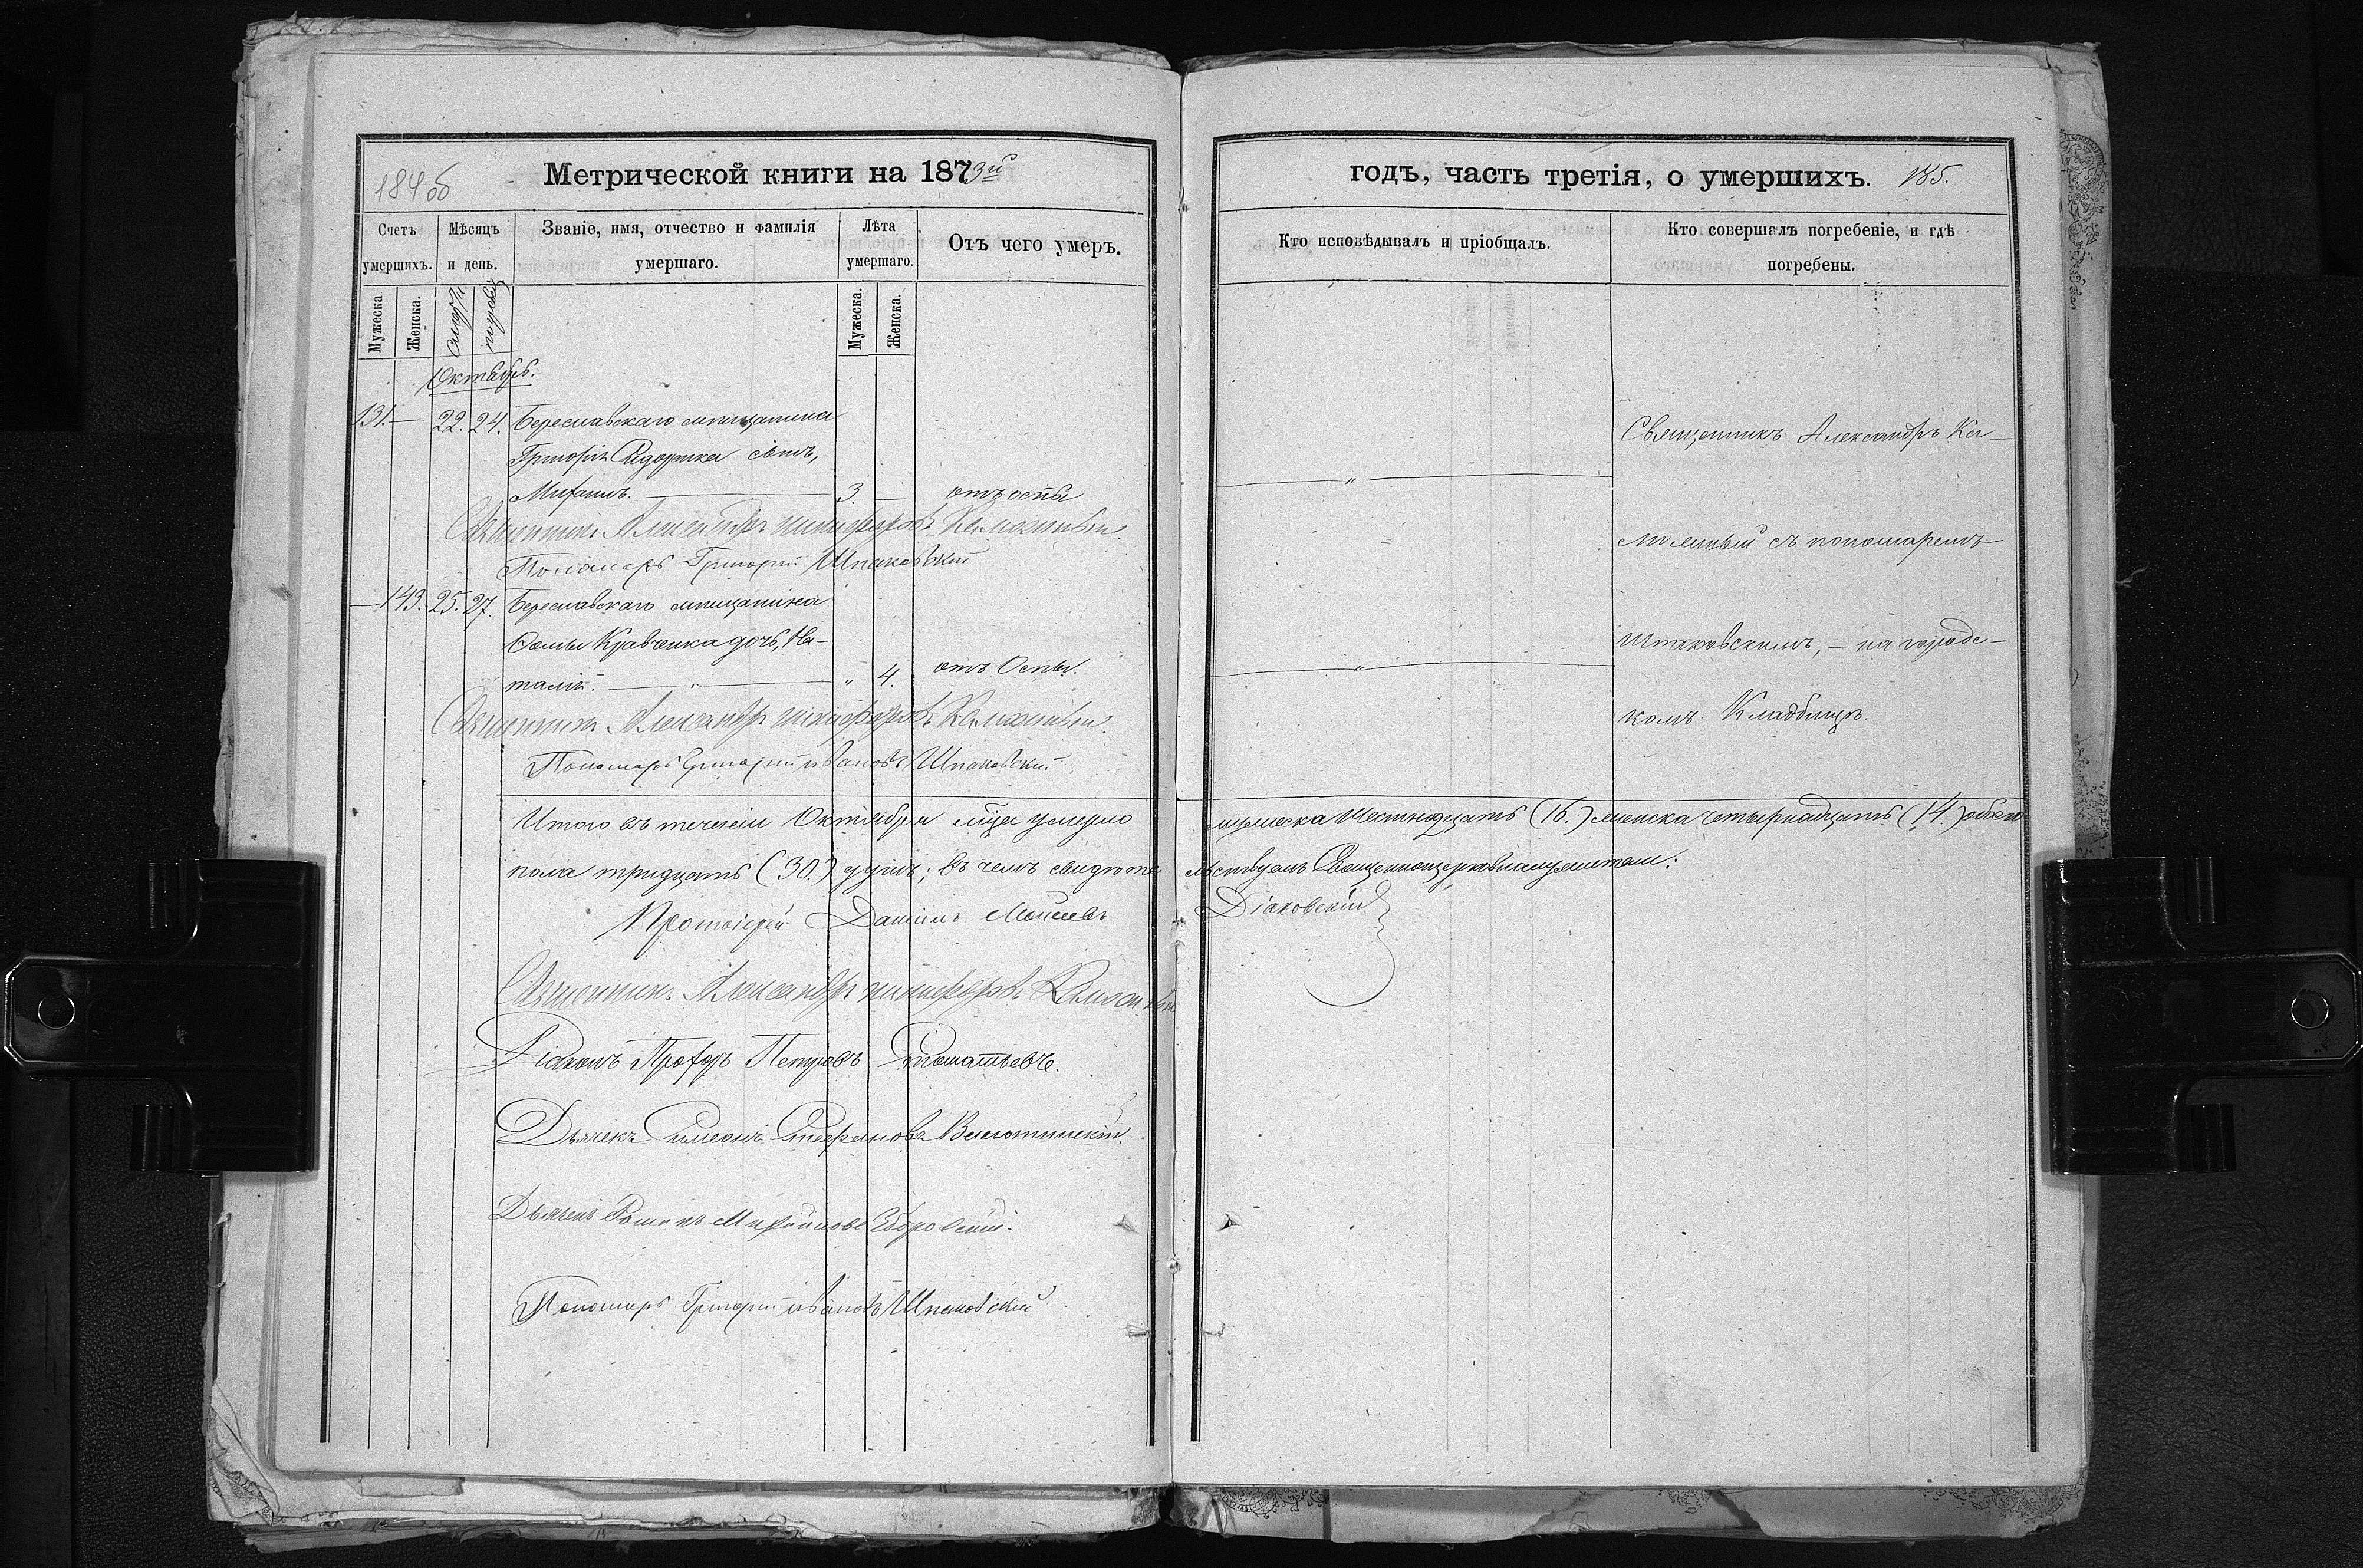 184 об
Метрической книги на 1873й
годъ, часть третія, о умершихъ. 185.
Счетъ умершихъ.
Мѣсяцъ и день.
Званіе, имя, отчество и фамилія умершаго.
Лѣта умершаго.
Отъ чего умеръ.
Кто исповѣдывалъ и пріобщалъ.
Кто совершалъ погребеніе, и гдѣ погребены.
Мужеска
Женска.
Мужеска.
Женска.
Октябрь.
131. — 22. 24. Береславскаго мѣщанина
Григорія Сидоренка сынъ,
Михаилъ. — 3. — отъ оспы
Священникъ Александръ Никифоровъ
Пономарь Григорій Шпаковскій
— 143. 25. 27. Береславскаго мѣщанина
Ѳомы Кравченка дочь, На-
талія. — „ — „ 4. отъ Оспы.
Священникъ Александръ Никифоровъ
Пономарь Григорій Ивановъ Шпаковскій
— „ —
— „ —
Священникъ Александръ Ка-
съ пономаремъ
Шпаковскимъ, — на городс-
комъ Кладбищѣ.
Итого въ теченіи Октября мца умерло мужеска шестнадцать (16.) женска четырнадцать (14.) обоего
пола тридцать (30.) душъ; въ чемъ свидѣтельствуемъ Священноцерковнослужители:
Протоіерей Даніилъ Моѵсеевъ Діаковскій
Священникъ Александръ Никифоровъ
Діаконъ Прохоръ Петровъ
Дьячекъ Симеонъ Стефановъ
Дьячекъ Романъ
Пономарь Григорій Ивановъ Шпаковскій